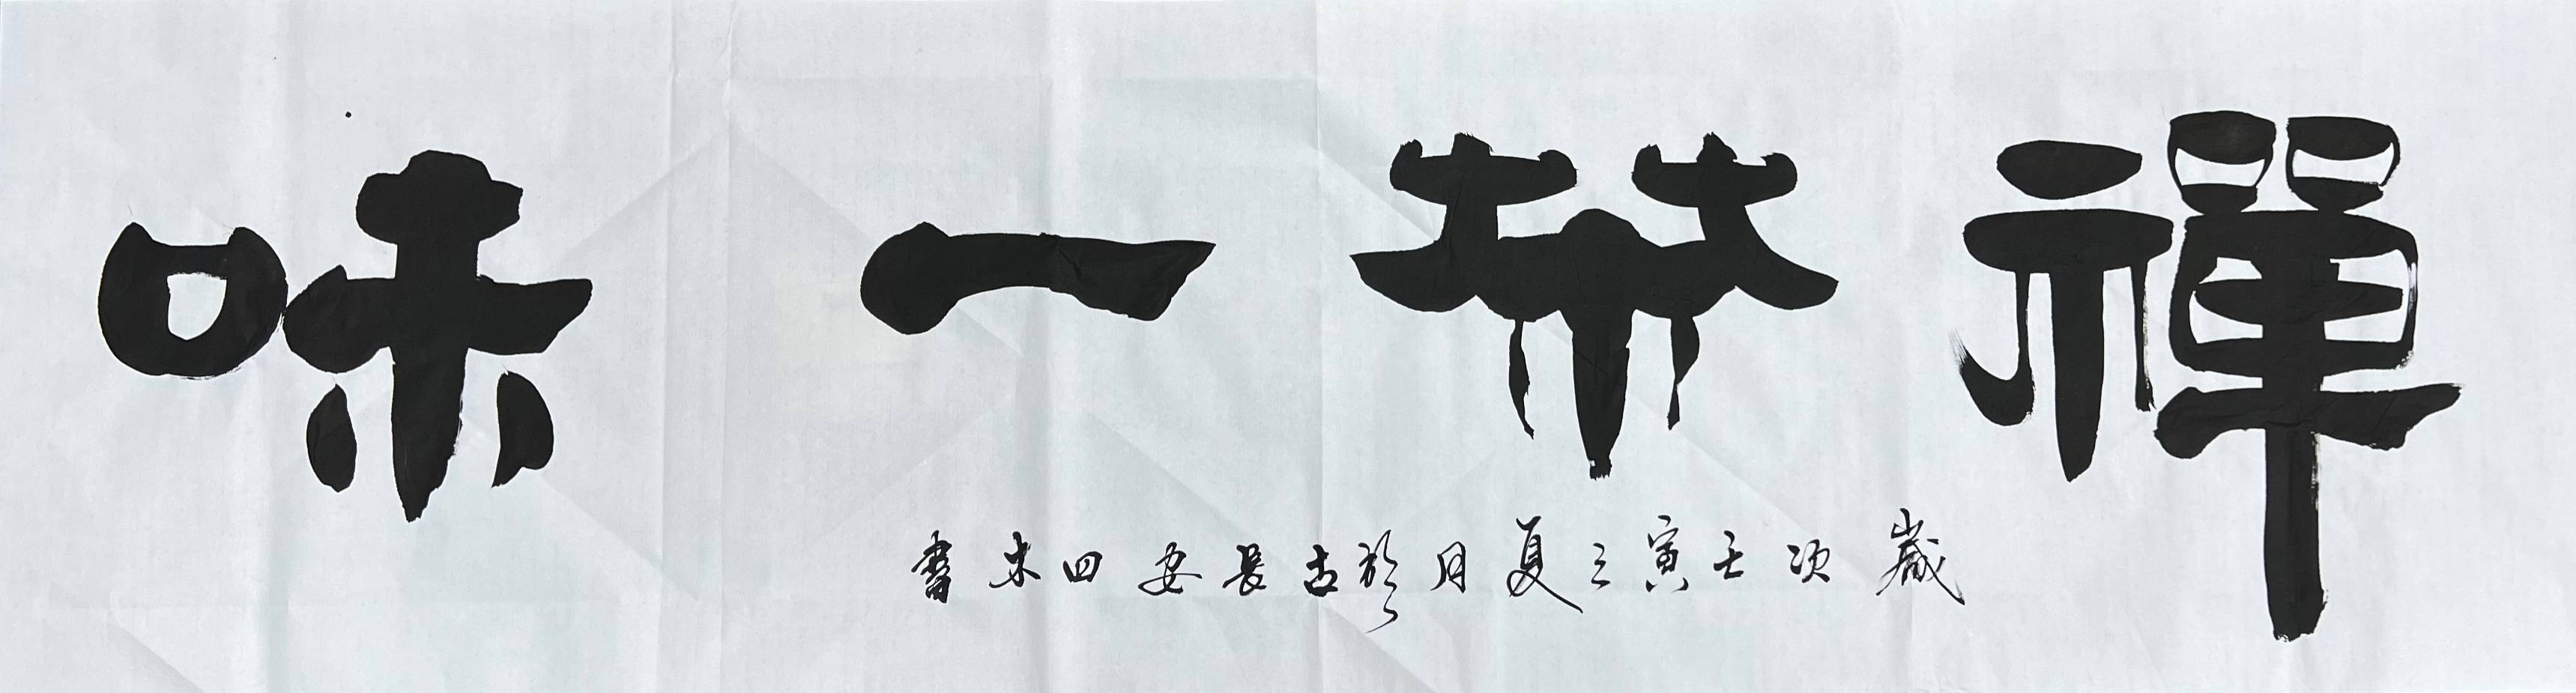 禪茶一味
歲次壬寅之夏月於古長安四木書